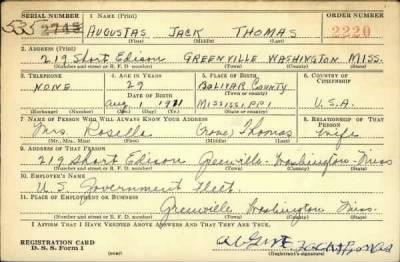 SERIAL NUMBER 1. NAME (Print) ORDER NUMBER
535 2745 AUGUSTAS JACK THOMAS 2220
(First) (Middle) (Last)
2. ADDRESS (Print)
219 Short Edison GREENVILLE WASHINGTON MISS.
(Number and street or R. F. D. number) (Town) (County) (State)
3. TELEPHONE 4. AGE IN YEARS 5. PLACE OF BIRTH 6. COUNTRY OF CITIZENSHIP
NONE 29 BOLIVAR COUNTY
DATE OF BIRTH (Town or county)
Aug 1911 MISSISSIPPI U.S.A.
(Exchange) (Number) (Mo.) (Day) (Yr.) (State or country)
7. NAME OF PERSON WHO WILL ALWAYS KNOW YOUR ADDRESS 8. RELATIONSHIP OF THAT PERSON
Mrs. Rosella (none) Thomas wife
(Mr., Mrs., Miss) (First) (Middle) (Last)
9. ADDRESS OF THAT PERSON
219 Short Edison Greenville Washington Miss
(Number and street or R. F. D. number) (Town) (County) (State)
10. EMPLOYER'S NAME
U.S. Government Fleet.
11. PLACE OF EMPLOYMENT OR BUSINESS
Greenville Washington Miss.
(Number and street or R. F. D. number) (Town) (County) (State)
I AFFIRM THAT I HAVE VERIFIED ABOVE ANSWERS AND THAT THEY ARE TRUE.
REGISTRATION CARD
D. S. S. Form 1 (Registrant's signature)